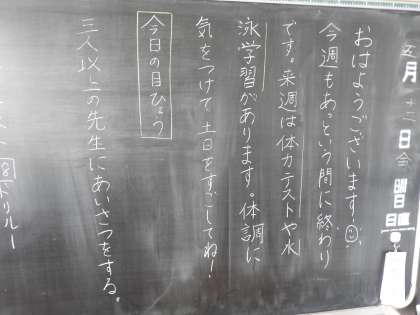 五月
日㊎
曜日
日直
おはようございます!
今週もあっという間に終わり
です。来週は体力テストや水
泳学習があります。体調に
気をつけて土日をすごしてね!
今日の目ひょう
三人以上の先生にあいさつをする。
ドリルー